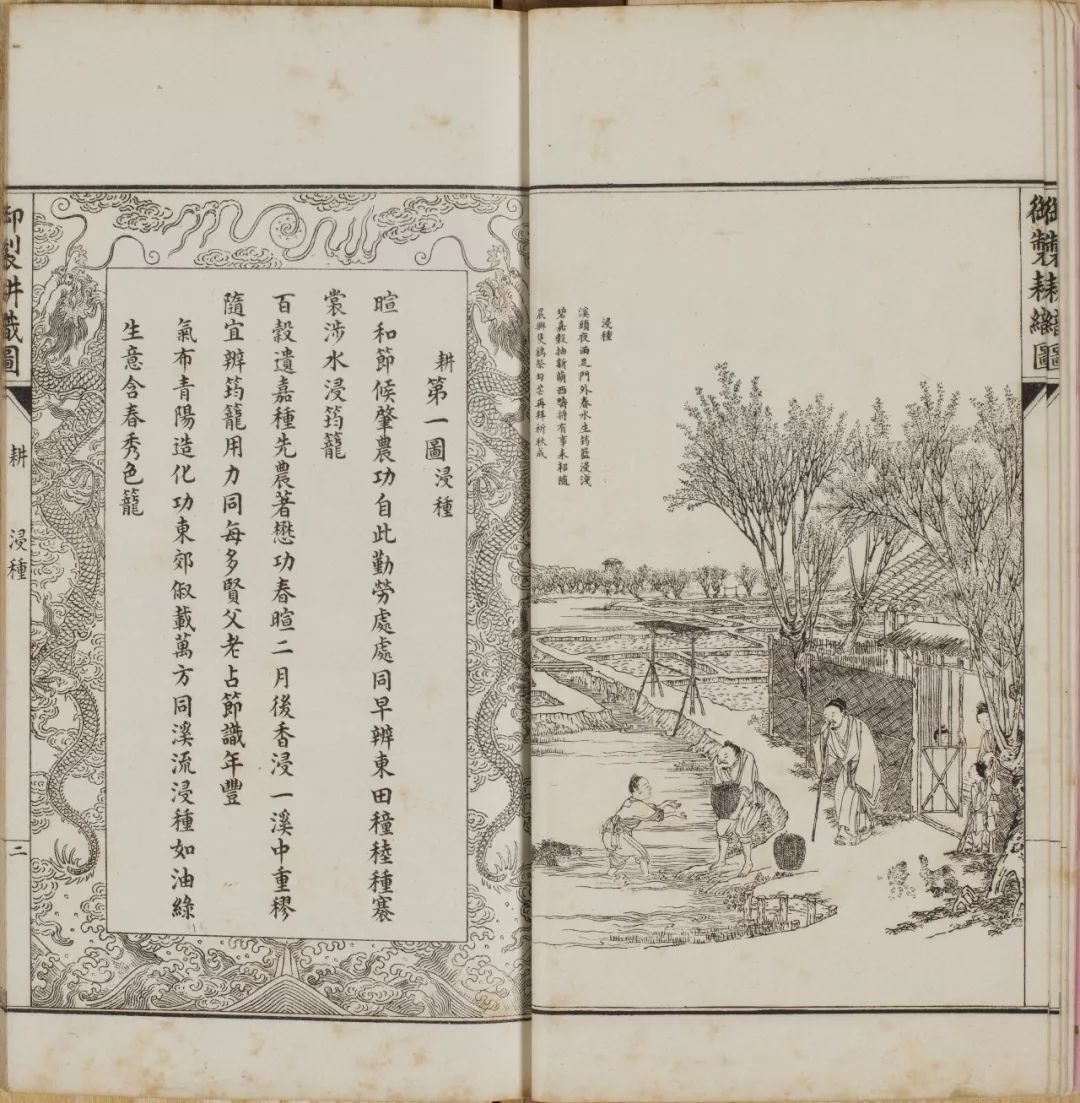 御製耕織圖
浸種
溪頭夜雨足門外春水生筠籃浸淺
碧嘉穀抽新萌西疇將有事耒耜隨
晨興隻鷄祭句芒再拜祈秋成
耕第一圖浸種
暄和節候肇農功自此勤勞處處同早辨東田穜稑種褰
裳涉水浸筠籠
百穀遺嘉種先農著懋功春暄二月後香浸一溪中重穋
隨宜辨筠籠用力同每多賢父老占節識年豐
氣布青陽造化功東郊俶載萬方同溪流浸種如油綠
生意含春秀色籠
御製耕織圖
耕 浸種
二